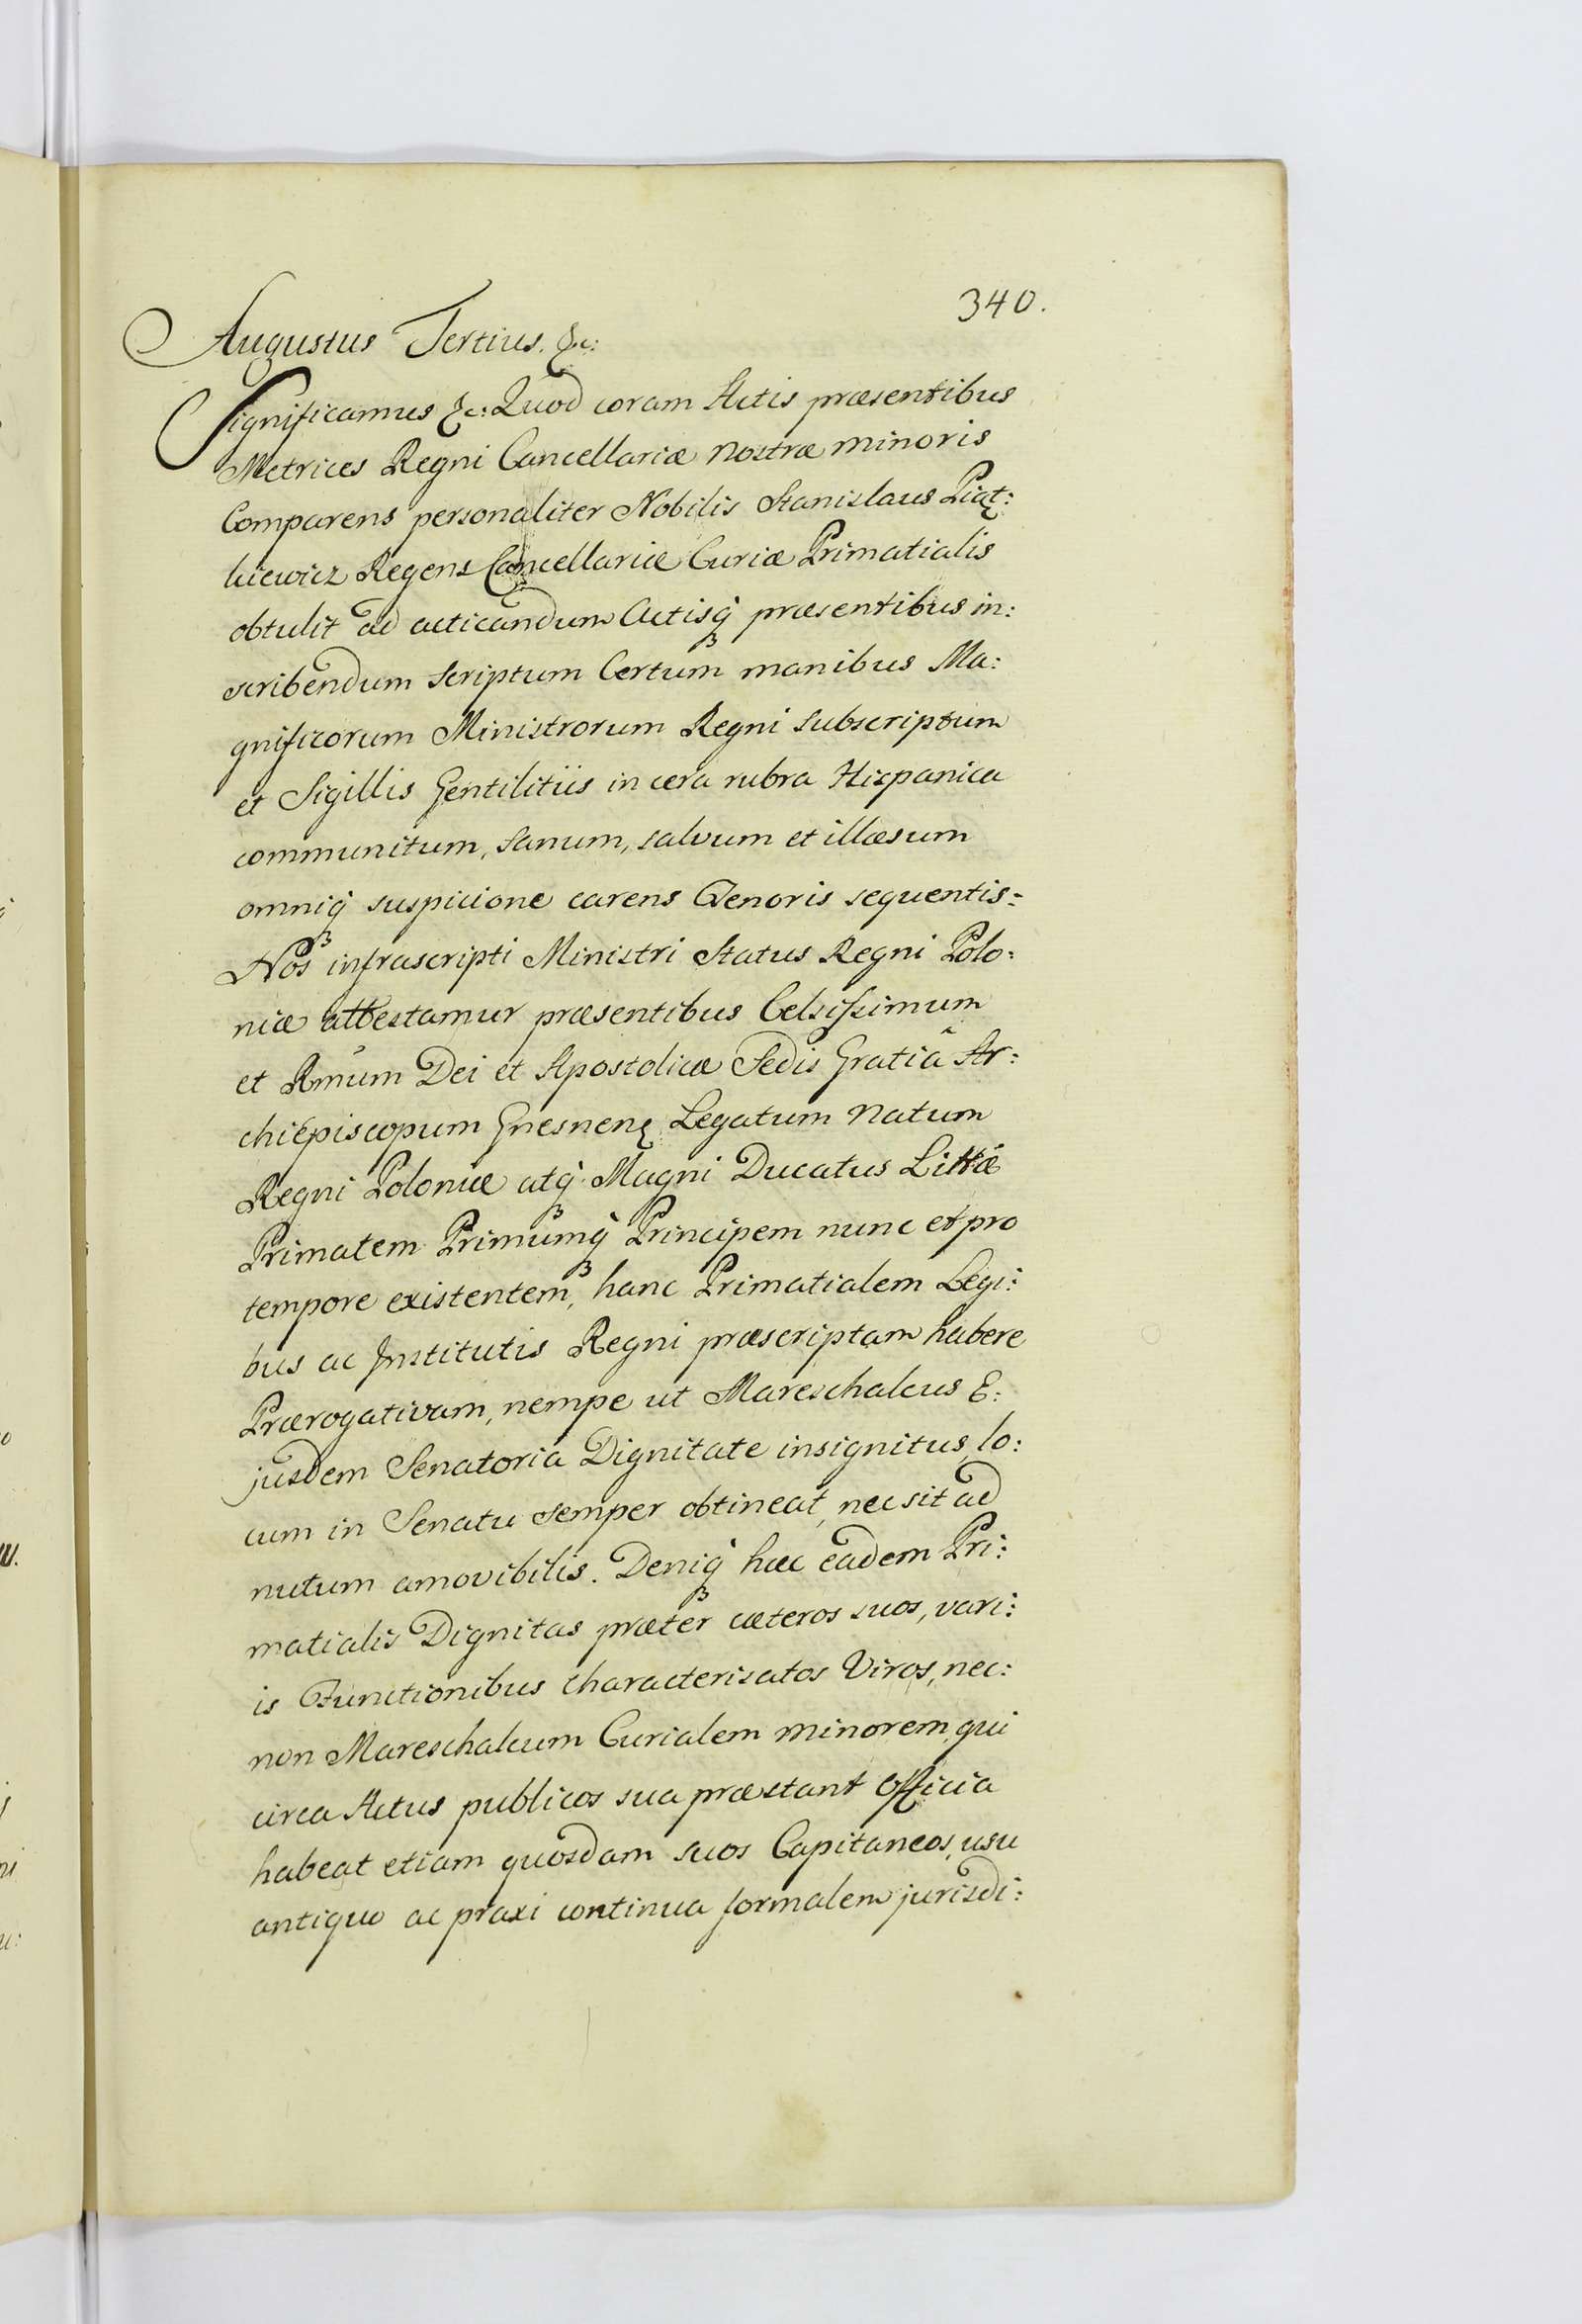 340.
Augustus Tertius. &c:
Significamus &c: Quod coram Actis præsentibus
Metrices Regni Cancellariæ nostræ minoris
Comparens personaliter Nobilis Stanislaus Piąt:
kiewicz Regens Cancellariæ Curiæ Primatialis
obtulit ad acticandum Actisq̀ præsentibus in:
scribendum Scriptum Certum manibus Ma:
gnificorum Ministrorum Regni subscriptum
et Sigillis Gentilitiis in cera rubra Hispanica
communitum, sanum, salvum et illæsum
omniq̀ suspicione carens Tenoris sequentis:
Nos infrascripti Ministri Status Regni Polo:
niæ attestamur præsentibus Celsissimum
et Rm̃um Dei et Apostolicæ Sedis Gratiâ Ar:
chiEpiscopum Gnesnenę Legatum Natum
Regni Poloniæ atq̀ Magni Ducatus Litt̃æ
Primatem Primumq̀ Principem nunc et pro
tempore existentem, hanc Primatialem Legi:
bus ac Institutis Regni præscriptam habere
Prærogativam, nempe ut Mareschalcus E:
jusdem Senatoria Dignitate insignitus, lo:
cum in Senatu semper obtineat, nec sit ad
nutum amovibilis. Deniq̀ hæc eadem Pri:
matialis Dignitas præter cæteros suos, vari:
is Functionibus characterisatos Viros, nec:
non Mareschalcum Curialem minorem, qui
circa Actus publicos sua præstant Officia
habeat etiam quosdam suos Capitaneos, usu
antiquo ac praxi continua formalem jurisdi: